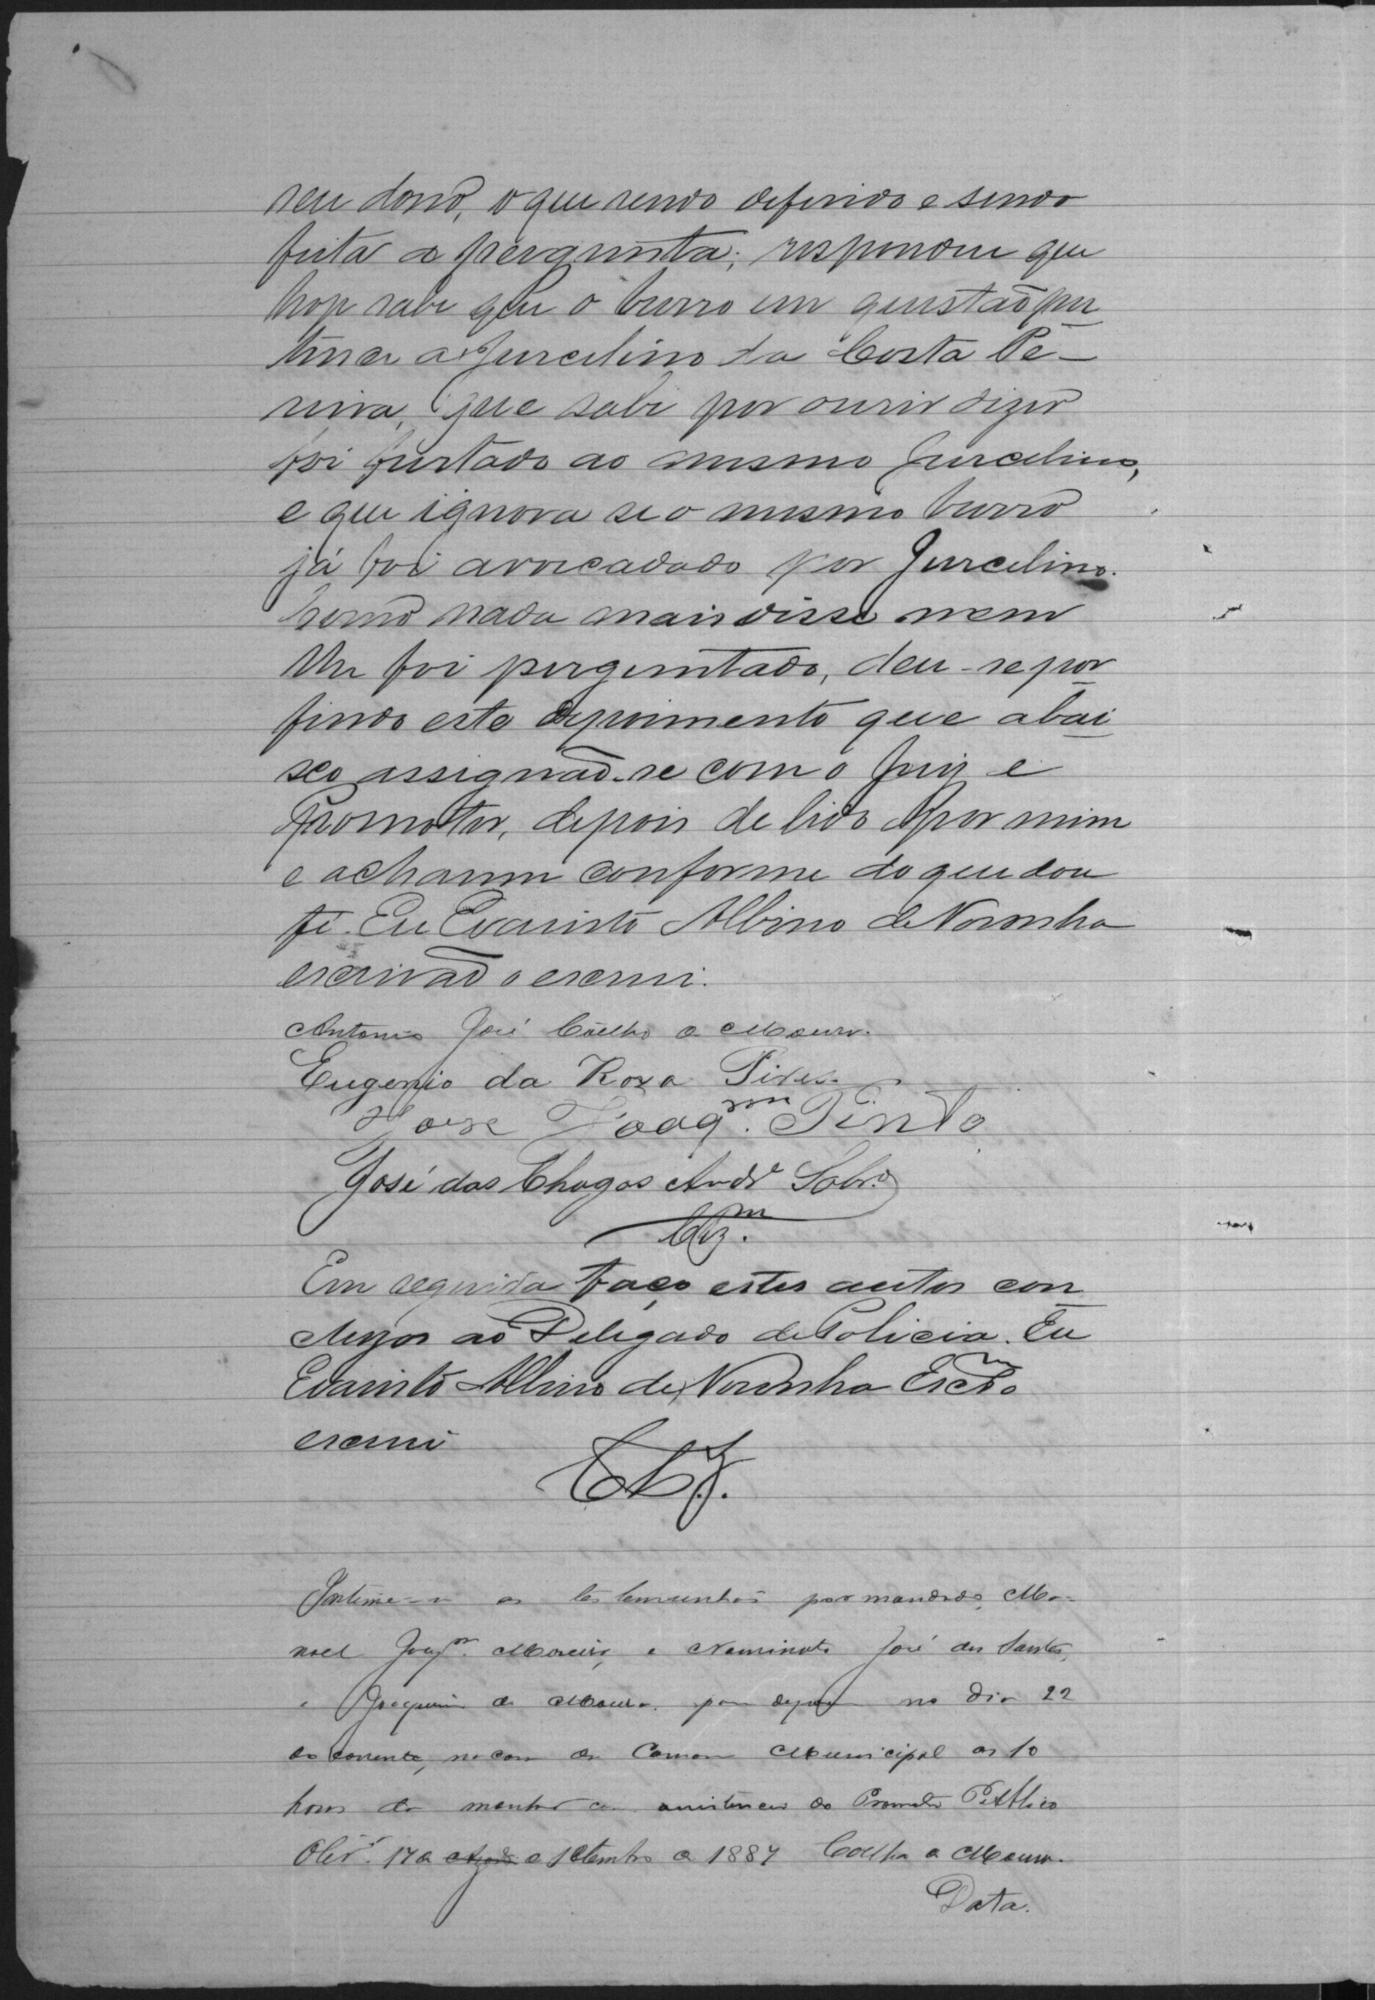 seu dono, o que sendo deferido e sendo
feita a pergunta; respondeu que
hoje sabe que o burro em questão per
tence a Jurcelino da Costa Pe-
reira, que sabe por ouvir dizer
foi furtado ao mesmo Jurcelino,
e que ignora se o mesmo burro
já foi por Jurcelino.
Como nada mais disse nem
lhe foi perguntado, deu-se por
findo este depoimento que abai
xo assignão-se com o Juiz e
Promotor, depois de lido por mim
e acharem conforme do que dou
fé. Eu Evaristo Albino de Noronha
escrivão o escrevi.
Antonio José Coelho de Moura.
Eugenio da Roxa Pires.
Jose Joaqm. Pinto
José das Chagas Andre Sobro
Clzm.
Em seguida faço estes autos con
cluzos ao Delegado de Policia. Eu
Evaristo Albino de Noronha Escrm o
escrevi
Clz.
Intime-se as testemunhas por mandado, Ma-
noel Joaqm. Moreira, e Neminato José dos Santos,
e Joaquim de Moura. para depor no dia 22
do corrente, na casa da Camara Municipal as 10
horas da manhã com assistencia do Promotor Publico
Olivra. 17 de setembro de 1887 Coelho de Moura.
Data.